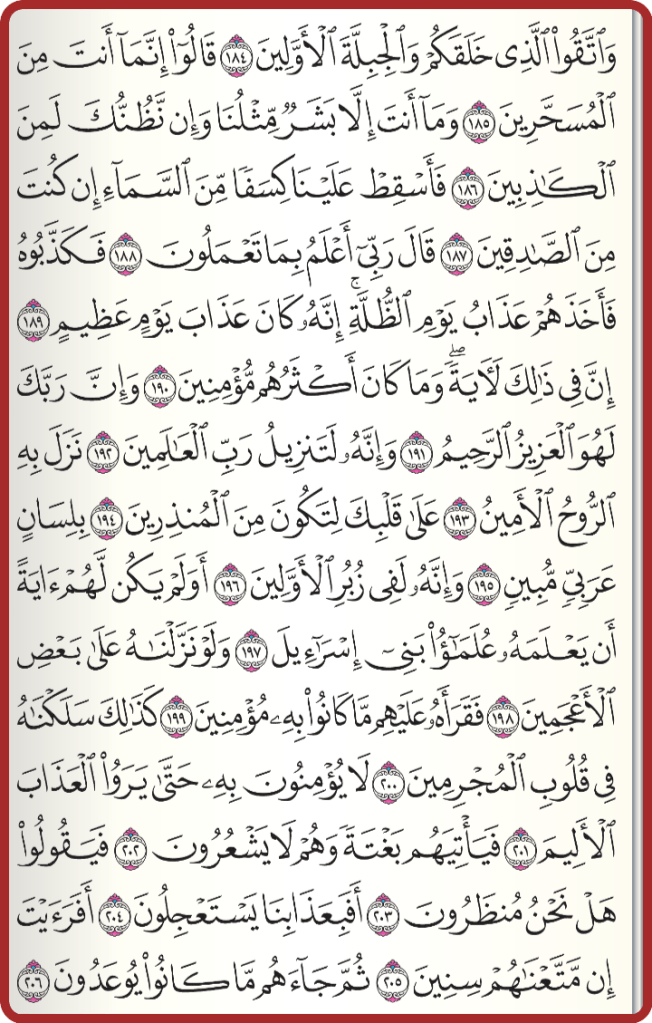 وَٱتَّقُوا۟ ٱلَّذِى خَلَقَكُمْ وَٱلْجِبِلَّةَ ٱلْأَوَّلِينَ ١٨٤ قَالُوٓا۟ إِنَّمَآ أَنتَ مِنَ
ٱلْمُسَحَّرِينَ ١٨٥ وَمَآ أَنتَ إِلَّا بَشَرٌ مِّثْلُنَا وَإِن نَّظُنُّكَ لَمِنَ
ٱلْكَـٰذِبِينَ ١٨٦ فَأَسْقِطْ عَلَيْنَا كِسَفًا مِّنَ ٱلسَّمَآءِ إِن كُنتَ
مِنَ ٱلصَّـٰدِقِينَ ١٨٧ قَالَ رَبِّىٓ أَعْلَمُ بِمَا تَعْمَلُونَ ١٨٨ فَكَذَّبُوهُ
فَأَخَذَهُمْ عَذَابُ يَوْمِ ٱلظُّلَّةِ ۚ إِنَّهُۥ كَانَ عَذَابَ يَوْمٍ عَظِيمٍ ١٨٩
إِنَّ فِى ذَٰلِكَ لَـَٔايَةً ۖ وَمَا كَانَ أَكْثَرُهُم مُّؤْمِنِينَ ١٩٠ وَإِنَّ رَبَّكَ
لَهُوَ ٱلْعَزِيزُ ٱلرَّحِيمُ ١٩١ وَإِنَّهُۥ لَتَنزِيلُ رَبِّ ٱلْعَـٰلَمِينَ ١٩٢ نَزَلَ بِهِ
ٱلرُّوحُ ٱلْأَمِينُ ١٩٣ عَلَىٰ قَلْبِكَ لِتَكُونَ مِنَ ٱلْمُنذِرِينَ ١٩٤ بِلِسَانٍ
عَرَبِىٍّ مُّبِينٍ ١٩٥ وَإِنَّهُۥ لَفِى زُبُرِ ٱلْأَوَّلِينَ ١٩٦ أَوَلَمْ يَكُن لَّهُمْ ءَايَةً
أَن يَعْلَمَهُۥ عُلَمَـٰٓؤُا۟ بَنِىٓ إِسْرَٰٓءِيلَ ١٩٧ وَلَوْ نَزَّلْنَـٰهُ عَلَىٰ بَعْضِ
ٱلْأَعْجَمِينَ ١٩٨ فَقَرَأَهُۥ عَلَيْهِم مَّا كَانُوا۟ بِهِۦ مُؤْمِنِينَ ١٩٩ كَذَٰلِكَ سَلَكْنَـٰهُ
فِى قُلُوبِ ٱلْمُجْرِمِينَ ٢٠٠ لَا يُؤْمِنُونَ بِهِۦ حَتَّىٰ يَرَوُا۟ ٱلْعَذَابَ
ٱلْأَلِيمَ ٢٠١ فَيَأْتِيَهُم بَغْتَةً وَهُمْ لَا يَشْعُرُونَ ٢٠٢ فَيَقُولُوا۟
هَلْ نَحْنُ مُنظَرُونَ ٢٠٣ أَفَبِعَذَابِنَا يَسْتَعْجِلُونَ ٢٠٤ أَفَرَءَيْتَ
إِن مَّتَّعْنَـٰهُمْ سِنِينَ ٢٠٥ ثُمَّ جَآءَهُم مَّا كَانُوا۟ يُوعَدُونَ ٢٠٦